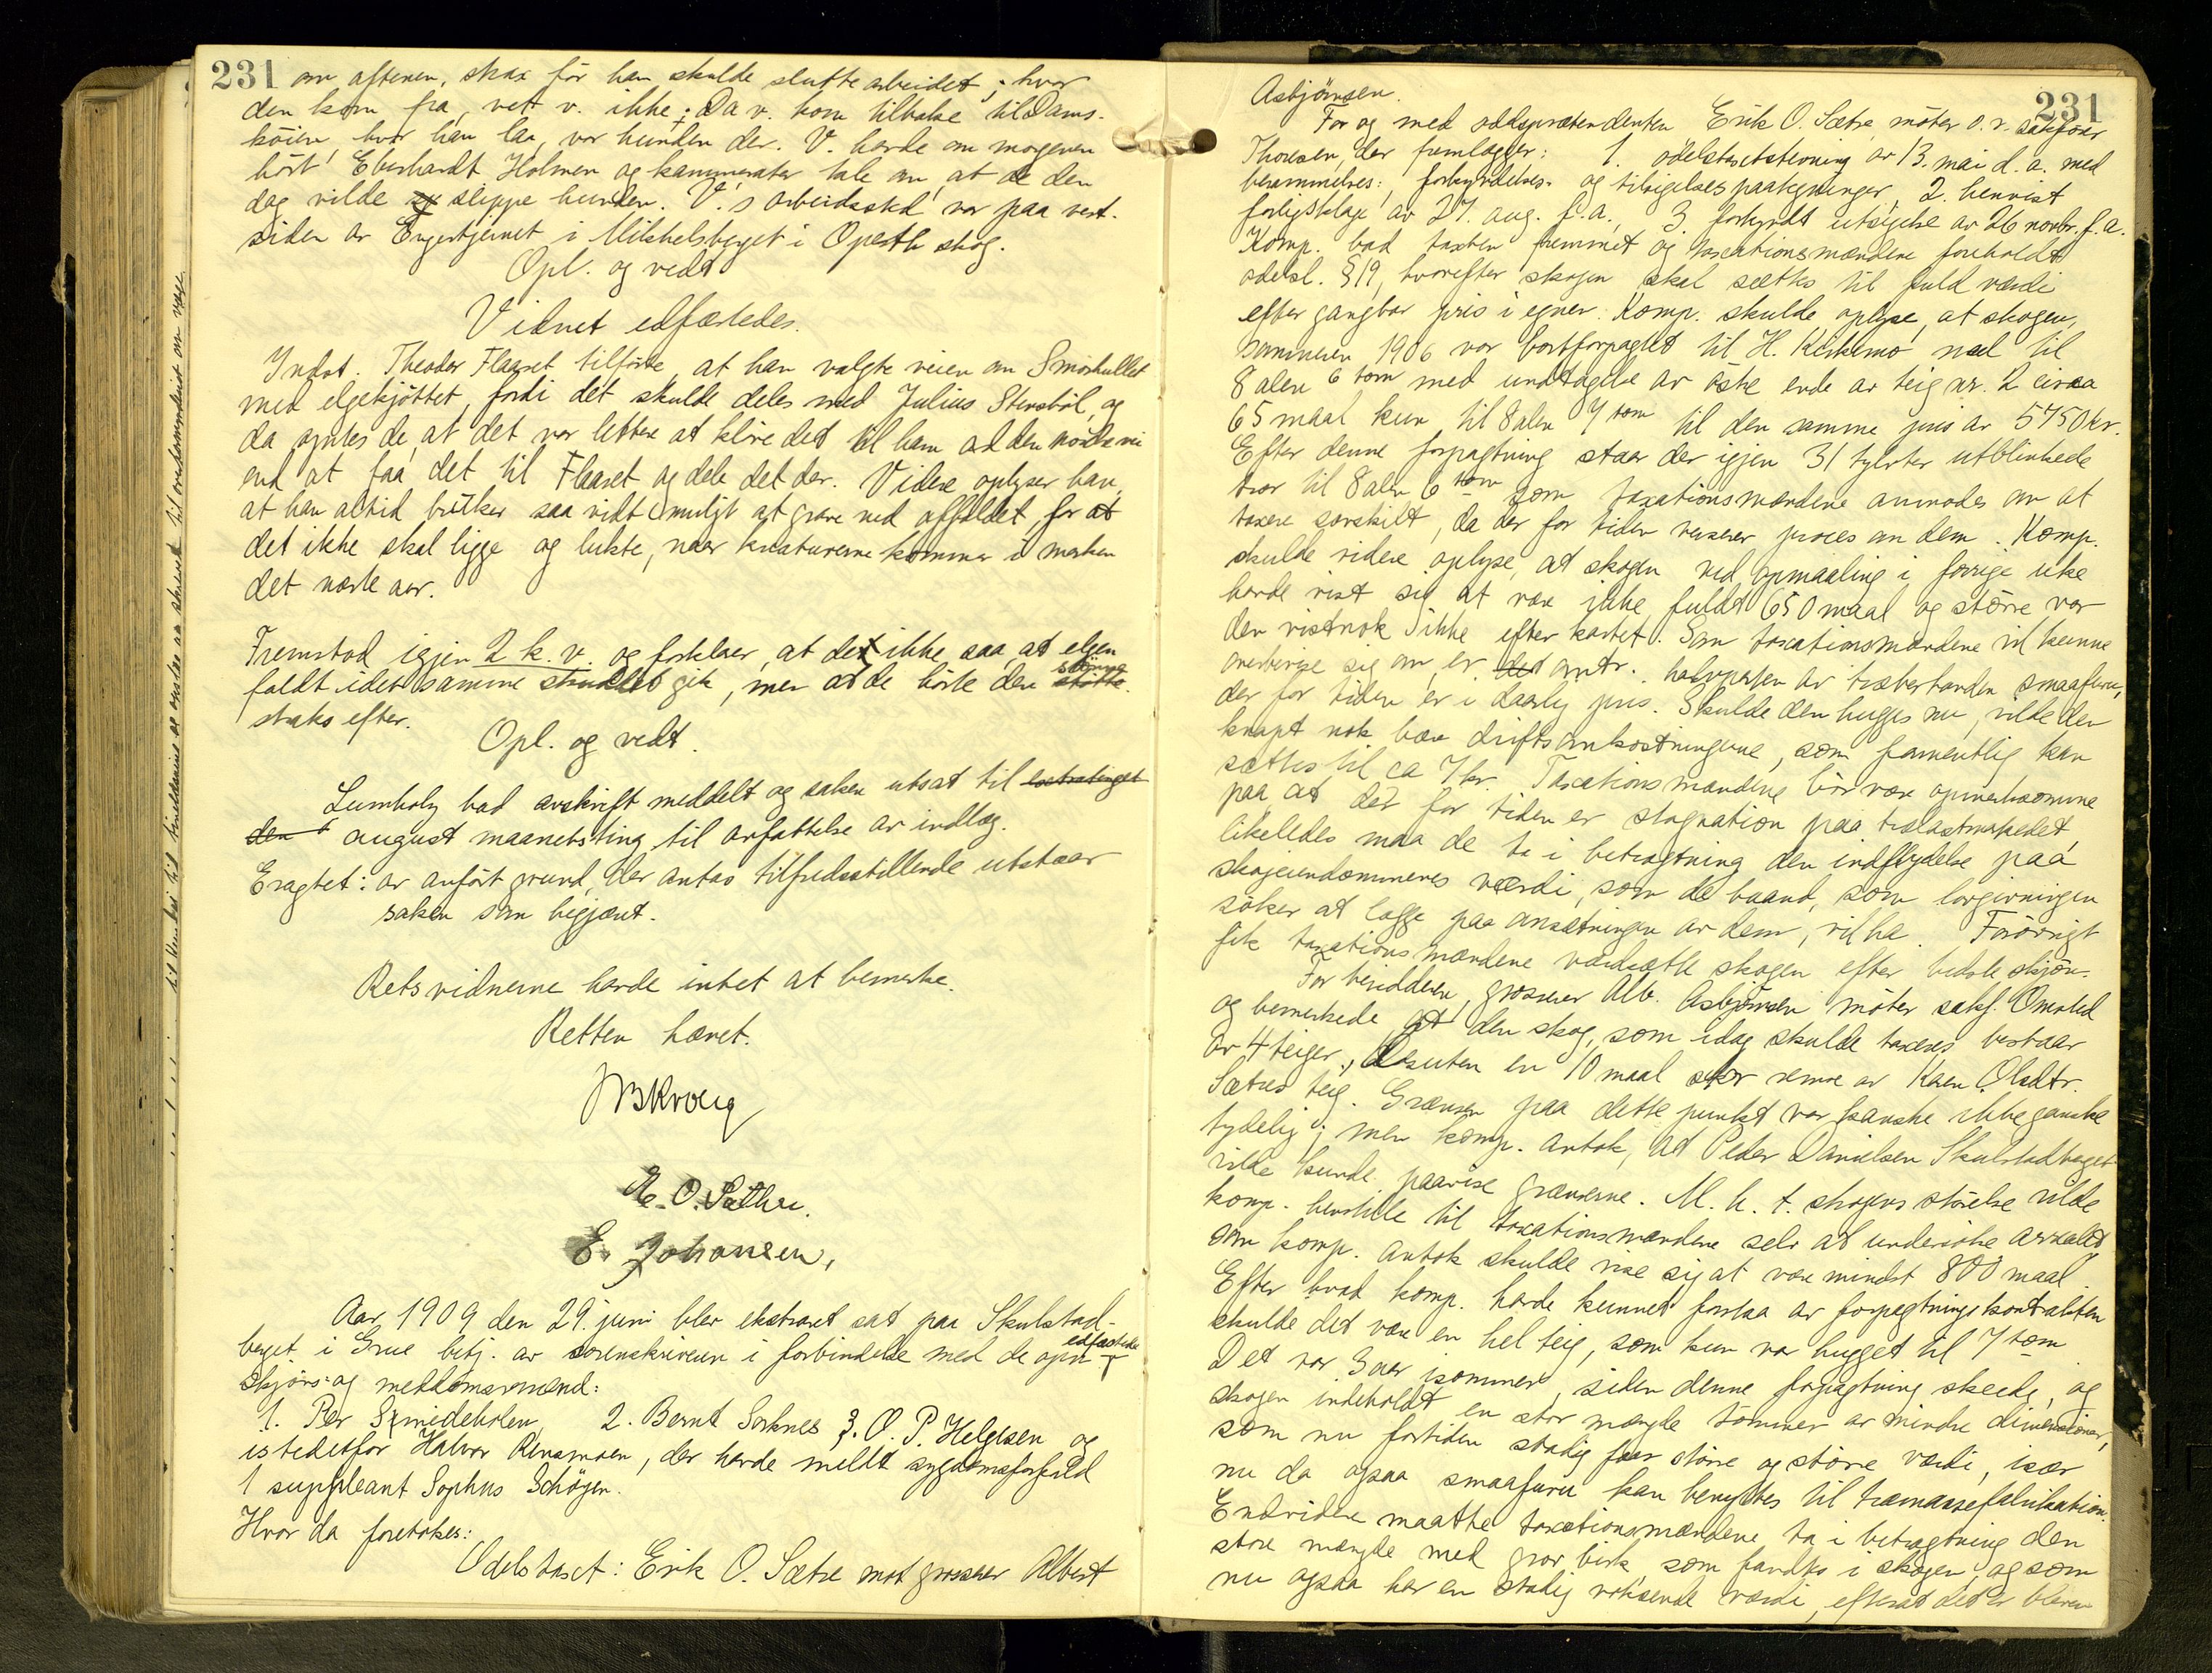 231 om aftenen, strax før han skulde slutte arbeidet; hvor
den kom fra, vet v. ikke; Da v. kom tilbake til Dams-
köien, hvor han laa, var hunden der. V. havde om morgenen
hört Eberhardt Holmen og kammerater tale om, at de den
dag vilde slippe hunden. V.s arbeidssted var paa vest-
siden av Engertjernet i Mikkelsberget i Opseth skog.
Opl. og vedt
Vidnet edfæstedes.
Indst. Theodor Flaaret tilførte, at han valgte veien om Smørhullet
med elgekjöttet, fordi det skulde deles med Julius Stensböl, og
da syntes de, at det var lettere at klöve det til ham ad den
end at faa det til Flaaret og dele det der. Videre oplyser han,
at han altid bruker saa vidt muligt at grave ned affaldet, for at
det ikke skal ligge og lukte, naar kreaturerne kommer i marken
det næste aar.
Fremstod igjen 2 k. v. og forklarer, at det ikke saa, at elgen
faldt idet samme skuddet gik, men at de hörte den stønne
straks efter.
Opl. og vedt.
Lumholtz bad avskrift meddelt og saken utsat til extratinget
den august maanedsting til avfattelse av indlæg.
Eragtet: av anført grund, der antas tilfredsstillende utstaar
saken som begjæret.
Retsvidnerne havde intet at bemerke.
Retten hævet.
E. O. Sæther.
E. Johansen,
Aar 1909 den 29. juni blev ekstraret sat paa Skulstad-
berget i Grue betj. av sorenskriveren i forbindelse med de opn. edfæstede
skjøns- og meddomsmænd:
1. Per Smideholen, 2. Bernt Sorknes 3. O. P. Helgesen og
istedetfor Halvor Rensmoen, der havde meldt sygdomsforfald
1 suppleant Sophus Schøyen.
Hvor da foretokes:
Odelstaxt: Erik O. Sætre mot grosserer Albert
231
Asbjörnsen.
For og med oddsprætendenten Erik O. Sætre møter o.r. sakfører
Thoresen, der fremlægger: 1. odelstaxtstevning av 13. mai d. a. med
berammelses-, forkyndelses- og tilsigelsespaategninger, 2. henvist
forligsklage av 27. aug. f.a., 3. forkyndt utsigelse av 26 novbr. f. a.
Komp. bad taxten fremmet og taxationsmændene foreholdt
odelsl. § 19, hvorefter skogen skal sættes til fuld værdi
efter gangbar pris i egnen. Komp. skulde oplyse, at skogen,
sommeren 1906 var bortforpagtet til H. Kirkemo ned til
8 alen 6 tom med undtagelse av østre ende av teig nr. 2 circa
65 maal kun til 8 alen 7 tom til den samme pris av 5750 kr.
Efter denne forpagtning staar der igjen 31 tylvter utblinkede
trær til 8 alen 6 tom som taxationsmændene anmodes om at
taxere særskilt, da der for tiden verserer proces om dem. Komp.
skulde videre oplyse, at skogen ved opmaaling i forrige uke
havde vist sig at være ikke fuldt 650 maal og større var
den vistnok ikke efter kartet. Som taxationsmændene vil kunne
overbevise sig om, er det omtr. halvparten av træbestanden smaafuru,
der for tiden er i daarlig pris. Skulde den hugges nu, vilde den
knapt nok bære driftsomkostningerne, som formentlig kan
sættes til ca 7 kr. Taxationsmændene bör være opmerksomme
paa, at der for tiden er stagnation paa trælastmarkedet,
likeledes maa de ta i betragtning den indflydelse paa
skogeiendommenes værdi, som de baand, som lovgivningen
søker at lægge paa omsætningen av dem, vil ha. Forøvrigt
fik taxationsmændene værdsætte skogen efter bedste skjön.
For besidderen, grosserer Alb. Asbjörnsen möter sakf. Omsted
og bemerkede, at den skog, som idag skulde taxeres bestaar
av 4 teiger, desuten en 10 maal stor remse av Karen Olsdtr.
Sætres teig. Grænsen paa dette punkt var kanske ikke ganske
tydelig; men komp. antok, at Peder Danielsen Skulstadberget
vilde kunde paavise grænserne. M. h. t. skogens störelse vilde
komp. henstille til taxationsmændene selv at undersöke arealet
som komp. antok skulde vise sig at være mindst 800 maal.
Efter hvad komp. havde kunnet forstaa av forpagtningskontrakten
skulde det være en hel teig, som kun var hugget til 7 tom
Det var 3 aar isommer, siden denne forpagtning skeede, og
skogen indeholdt en stor mængde tömmer av mindre dimensioner,
som nu fortiden stadig faar större og större værdi, især
nu da ogsaa smaafuru kan benyttes til træmassefabrikation.
Endvidere maatte taxationsmændene ta i betragtning den
store mængde med grov birk, som fandtes i skogen, og som
nu ogsaa har en stadig voksende værdi, efterat det er bleven